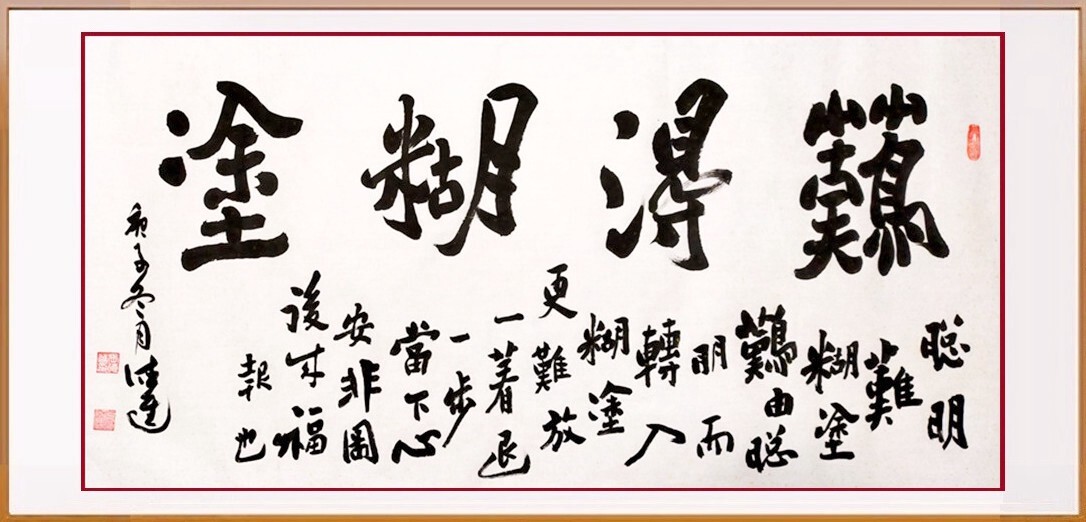 難得糊塗
聰明
難
糊塗
難由聰
明而
轉入
糊塗
更難放
一著退
一步
當下心
安非圖
後来福
報也
庚子冬月